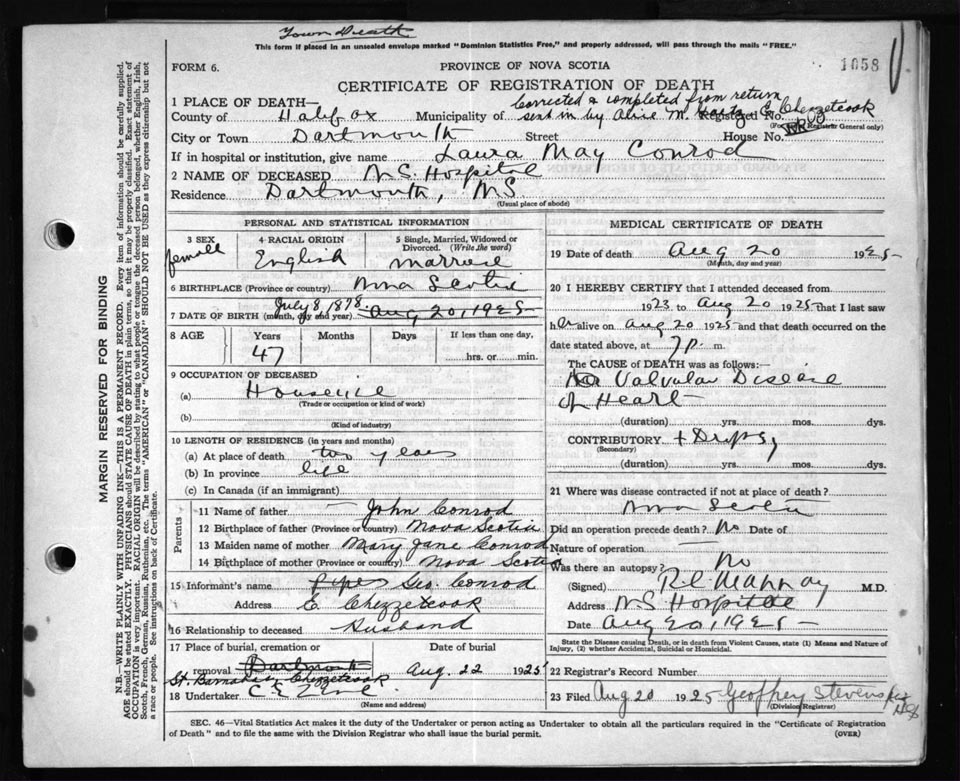 Town Death
This form if placed in an unsealed envelope marked "Dominion Statistics Free," and properly addressed, will pass through the mails "FREE."
FORM 6.
PROVINCE OF NOVA SCOTIA
1058
CERTIFICATE OF REGISTRATION OF DEATH
Corrected & completed from return
1 PLACE OF DEATH—
sent in by Alice M. E. Chezzetcook
County of Halifax Municipality of Registered No.
(For Registrar General only)
City or Town Dartmouth Street House No.
If in hospital or institution, give name Laura May Conrod
2 NAME OF DECEASED N.S. Hospital
Residence Dartmouth, NS
(Usual place of abode)
PERSONAL AND STATISTICAL INFORMATION
3 SEX female
4 RACIAL ORIGIN English
5 Single, Married, Widowed or Divorced. (Write the word) married
6 BIRTHPLACE (Province or country) Nova Scotia
July 8, 1878.
7 DATE OF BIRTH (month, day and year) Aug 20, 1925
8 AGE Years Months Days If less than one day,
47 hrs. or min.
9 OCCUPATION OF DECEASED
(a) Housewife
(Trade or occupation or kind of work)
(b)
(Kind of industry)
10 LENGTH OF RESIDENCE (in years and months)
(a) At place of death two years
(b) In province life
(c) In Canada (if an immigrant)
Parents
11 Name of father John Conrod
12 Birthplace of father (Province or country) Nova Scotia
13 Maiden name of mother Mary Jane Conrod
14 Birthplace of mother (Province or country) Nova Scotia
15 Informant's name Geo. Conrod
Address E. Chezzetcook
16 Relationship to deceased Husband
17 Place of burial, cremation or Date of burial
removal Dartmouth Aug. 22 1925
St. Barnabas Chezzetcook
18 Undertaker
(Name and address)
MEDICAL CERTIFICATE OF DEATH
19 Date of death Aug 20 1925
(Month, day and year)
20 I HEREBY CERTIFY that I attended deceased from
1923 to Aug 20 1925 that I last saw
her alive on Aug 20 1925 and that death occurred on the
date stated above, at 7 P. m.
The CAUSE of DEATH was as follows:
Valvular Disease
of Heart
(duration) yrs. mos. dys.
CONTRIBUTORY + Dropsy
(Secondary)
(duration) yrs. mos. dys.
21 Where was disease contracted if not at place of death?
Nova Scotia
Did an operation precede death? No Date of
Nature of operation
Was there an autopsy? No
(Signed) M.D.
Address NS Hospital
Date Aug 20, 1925
State the Disease causing Death, or in death from Violent Causes, state (1) Means and Nature of
Injury, (2) whether Accidental, Suicidal or Homicidal.
22 Registrar's Record Number
23 Filed Aug 20 1925 Geoffrey Stevens
(Division Registrar)
SEC. 46—Vital Statistics Act makes it the duty of the Undertaker or person acting as Undertaker to obtain all the particulars required in the "Certificate of Registration
of Death" and to file the same with the Division Registrar who shall issue the burial permit.
(OVER)
MARGIN RESERVED FOR BINDING
N.B.—WRITE PLAINLY WITH UNFADING INK—THIS IS A PERMANENT RECORD. Every item of information should be carefully supplied.
AGE should be stated EXACTLY. PHYSICIANS should STATE CAUSE OF DEATH in plain terms, so that it may be properly classified. Exact statement of
OCCUPATION is very important. RACIAL ORIGIN will be described by stating to what people or tongue the deceased person belonged, whether English, Irish,
Scotch, French, German, Russian, Ruthenian, etc. The terms "AMERICAN" or "CANADIAN" SHOULD NOT BE USED as they express citizenship but not
a race or people. See instructions on back of Certificate.